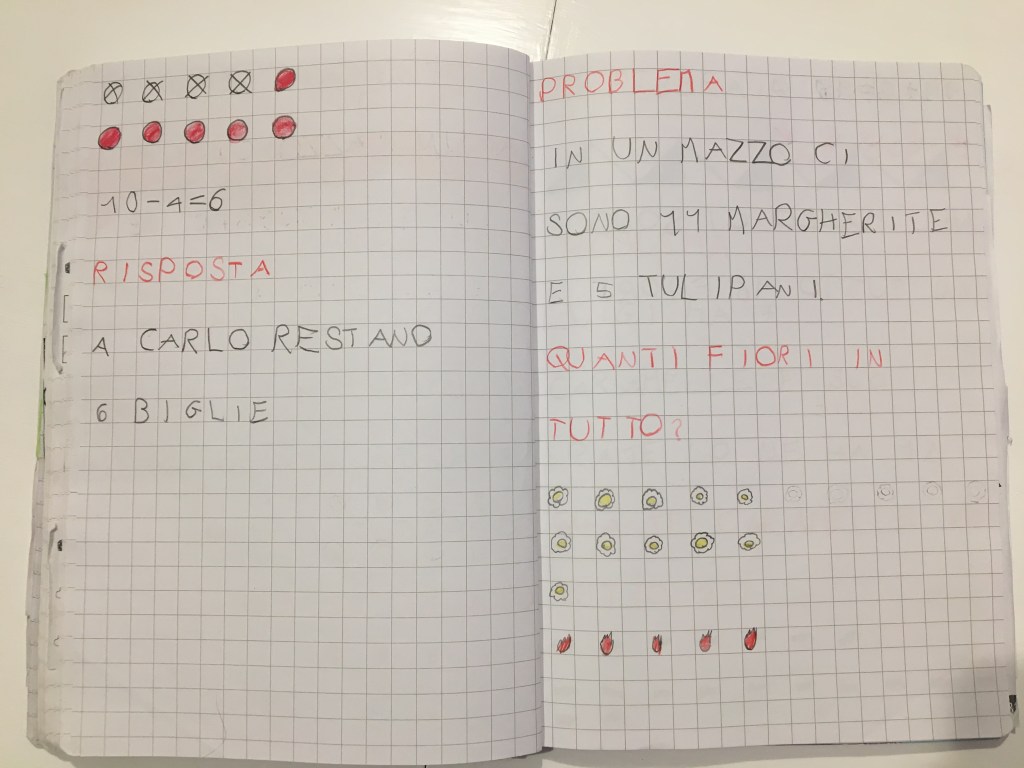 10-4=6
RISPOSTA
A CARLO RESTANO
6 BIGLIE
PROBLEMA
IN UN MAZZO CI
SONO 11 MARGHERITE
E 5 TULIPANI.
QUANTI FIORI IN
TUTTO?